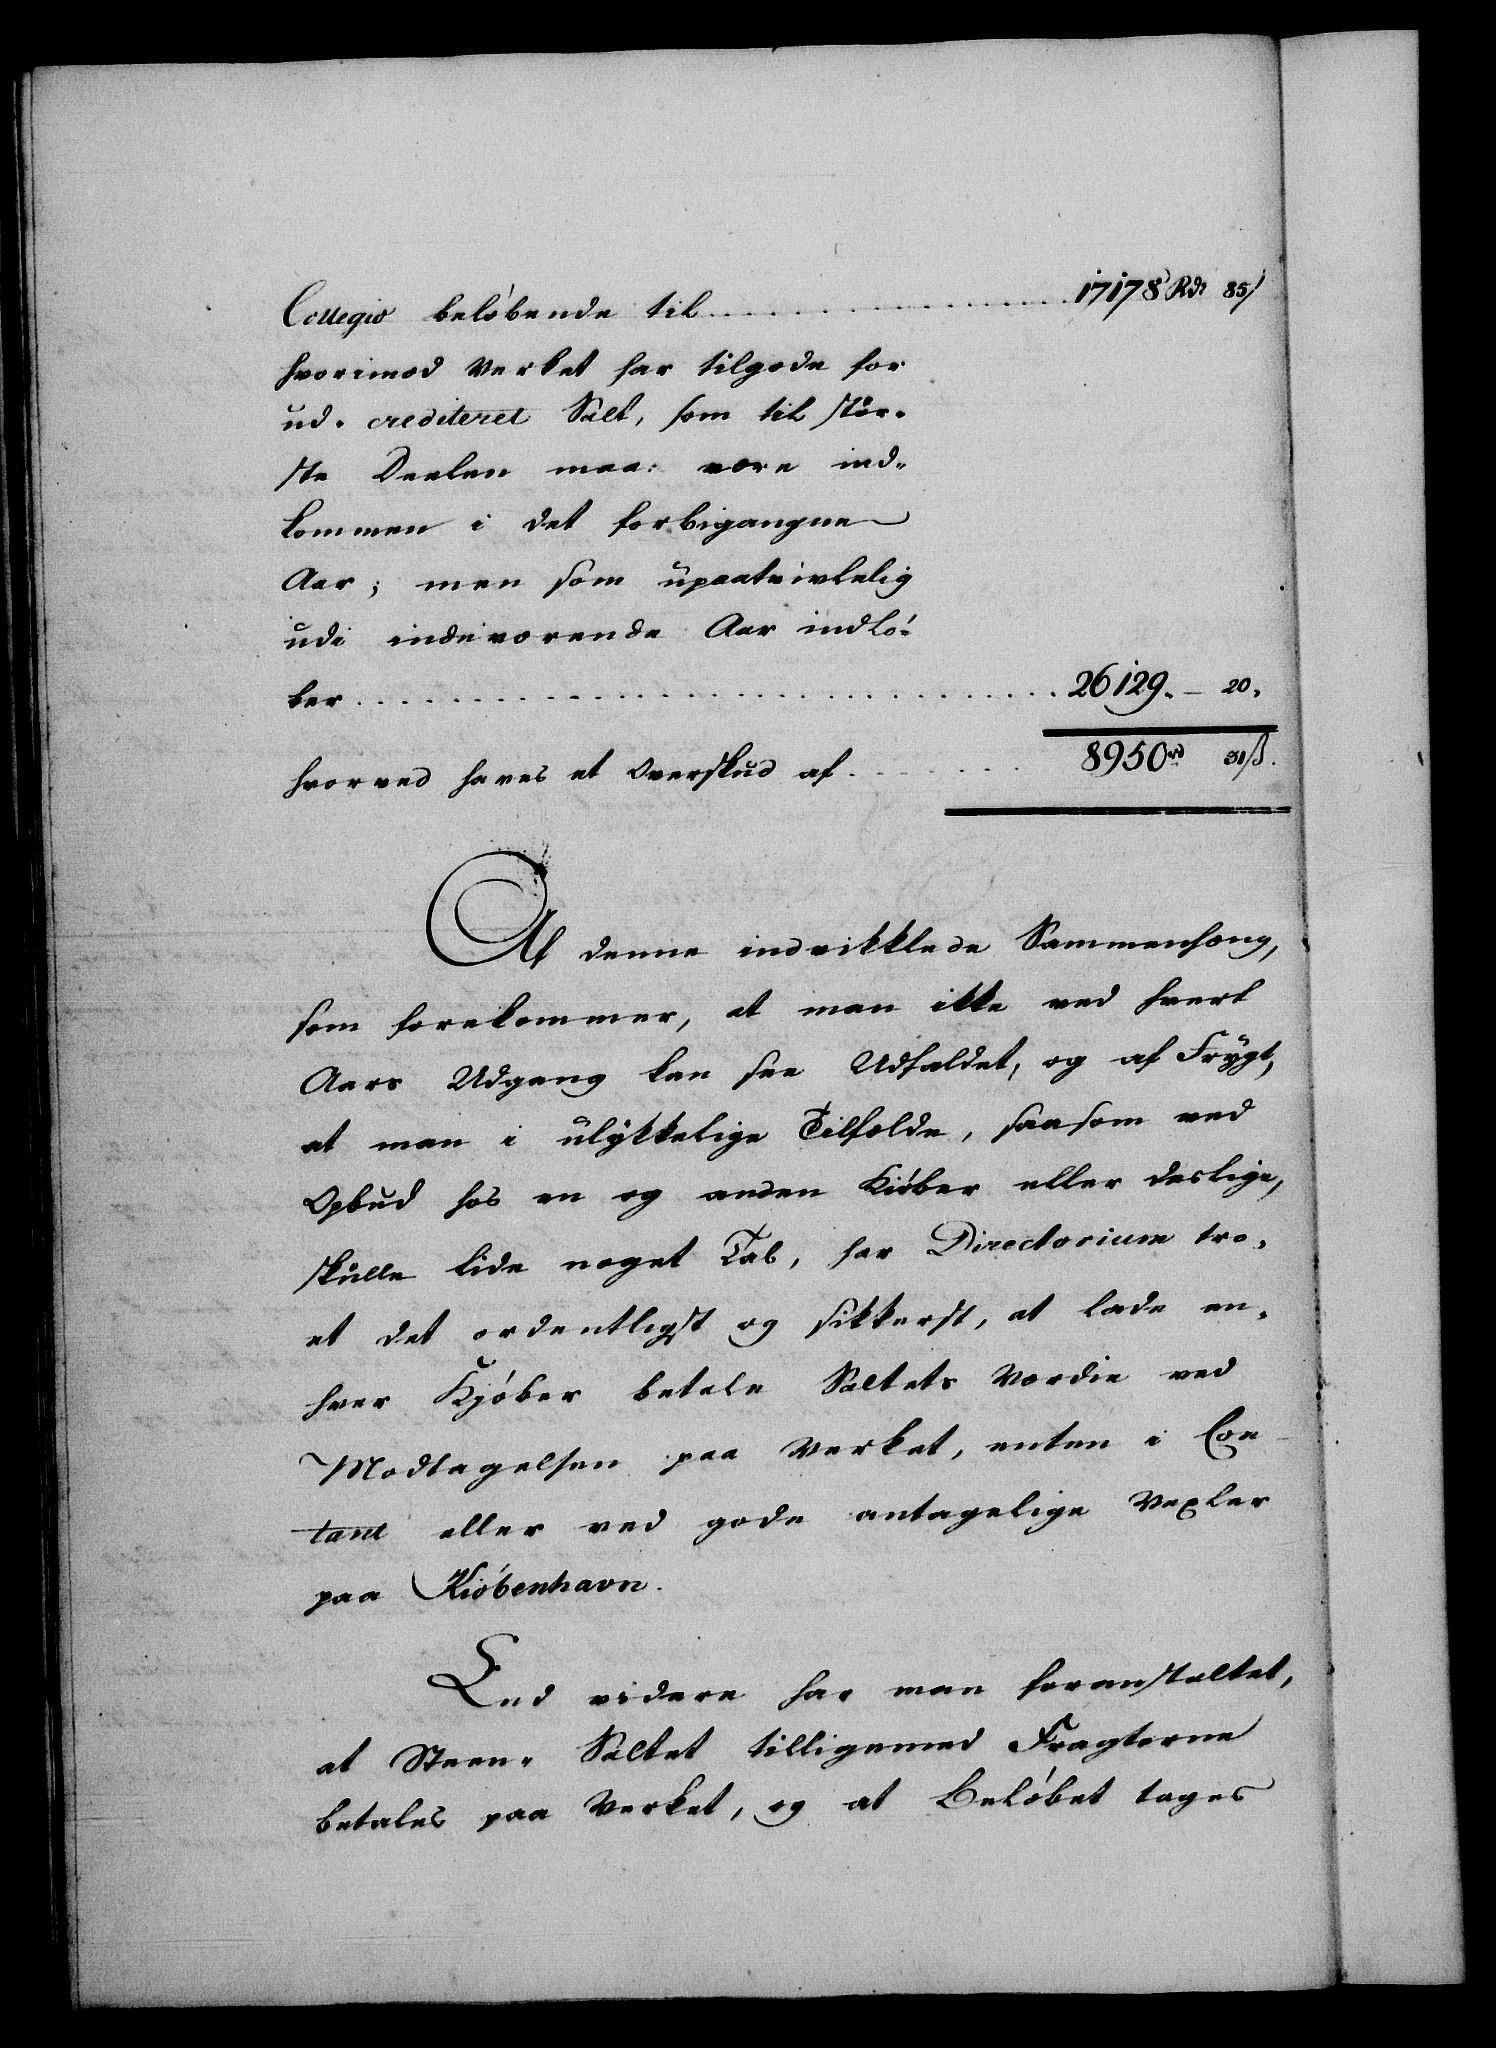 Collegio beløbende til . . . . . . . . . . . . . 17178 Rdr 85ß
hvorimod Verket har tilgode for
ud- crediteret Salt, som til stør-
ste Deelen maa være ind-
kommen i det forbigangne
Aar; men som upaatvivlelig
udi indeværende Aar indlø-
ber . . . . . . . . . . . . . . . . . . . . . . 26129. — 20.
hvorved haves et Overskud af . . . . . . 8950rd 31ß.
Af denne indvikklede Sammenhæng,
som forekommer, at man ikke ved hvert
Aars Udgang kan see Udfaldet, og af Frygt,
at man i ulykkelige Tilfælde, saasom ved
Opbud hos en og anden Kiøber eller deslige,
skulle lide noget Tab, har Directorium tro-
et det ordentligst og sikkerst, at lade en-
hver Kjøber betale Saltets Værdie ved
Modtagelsen paa Verket, enten i Con-
tant eller ved gode antagelige Vexler
paa Kiøbenhavn.
End videre har man foranstaltet,
at Steen- Saltet tilligemed Fragterne
betales paa Verket, og at Beløbet tages